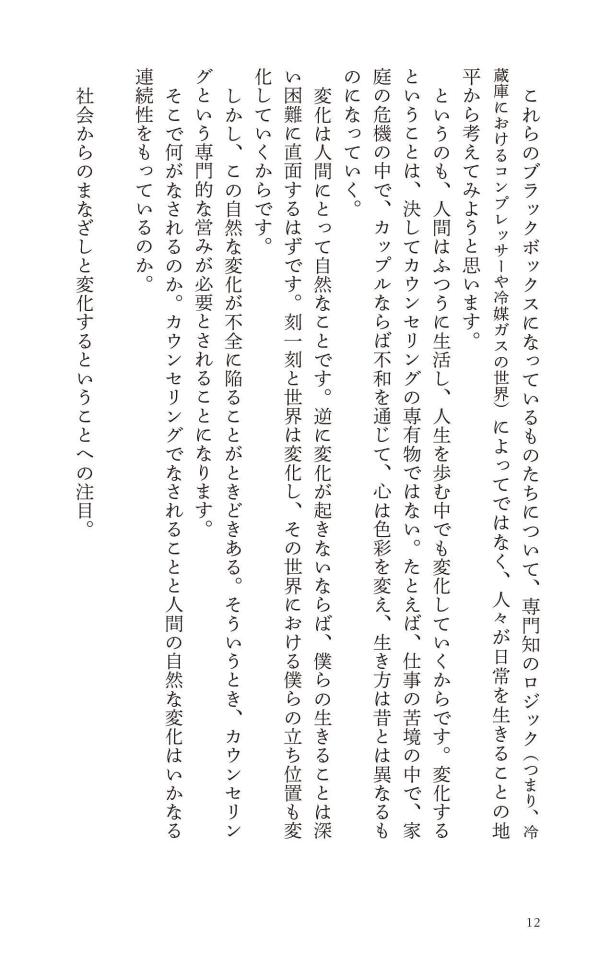 これらのブラックボックスになっているものたちについて、専門知のロジック（つまり、冷
蔵庫におけるコンプレッサーや冷媒ガスの世界）によってではなく、人々が日常を生きることの地
平から考えてみようと思います。
というのも、人間はふつうに生活し、人生を歩む中でも変化していくからです。変化する
ということは、決してカウンセリングの専有物ではない。たとえば、仕事の苦境の中で、家
庭の危機の中で、カップルならば不和を通じて、心は色彩を変え、生き方は昔とは異なるも
のになっていく。
変化は人間にとって自然なことです。逆に変化が起きないならば、僕らの生きることは深
い困難に直面するはずです。刻一刻と世界は変化し、その世界における僕らの立ち位置も変
化していくからです。
しかし、この自然な変化が不全に陥ることがときどきある。そういうとき、カウンセリン
グという専門的な営みが必要とされることになります。
そこで何がなされるのか。カウンセリングでなされることと人間の自然な変化はいかなる
連続性をもっているのか。
社会からのまなざしと変化するということへの注目。
12